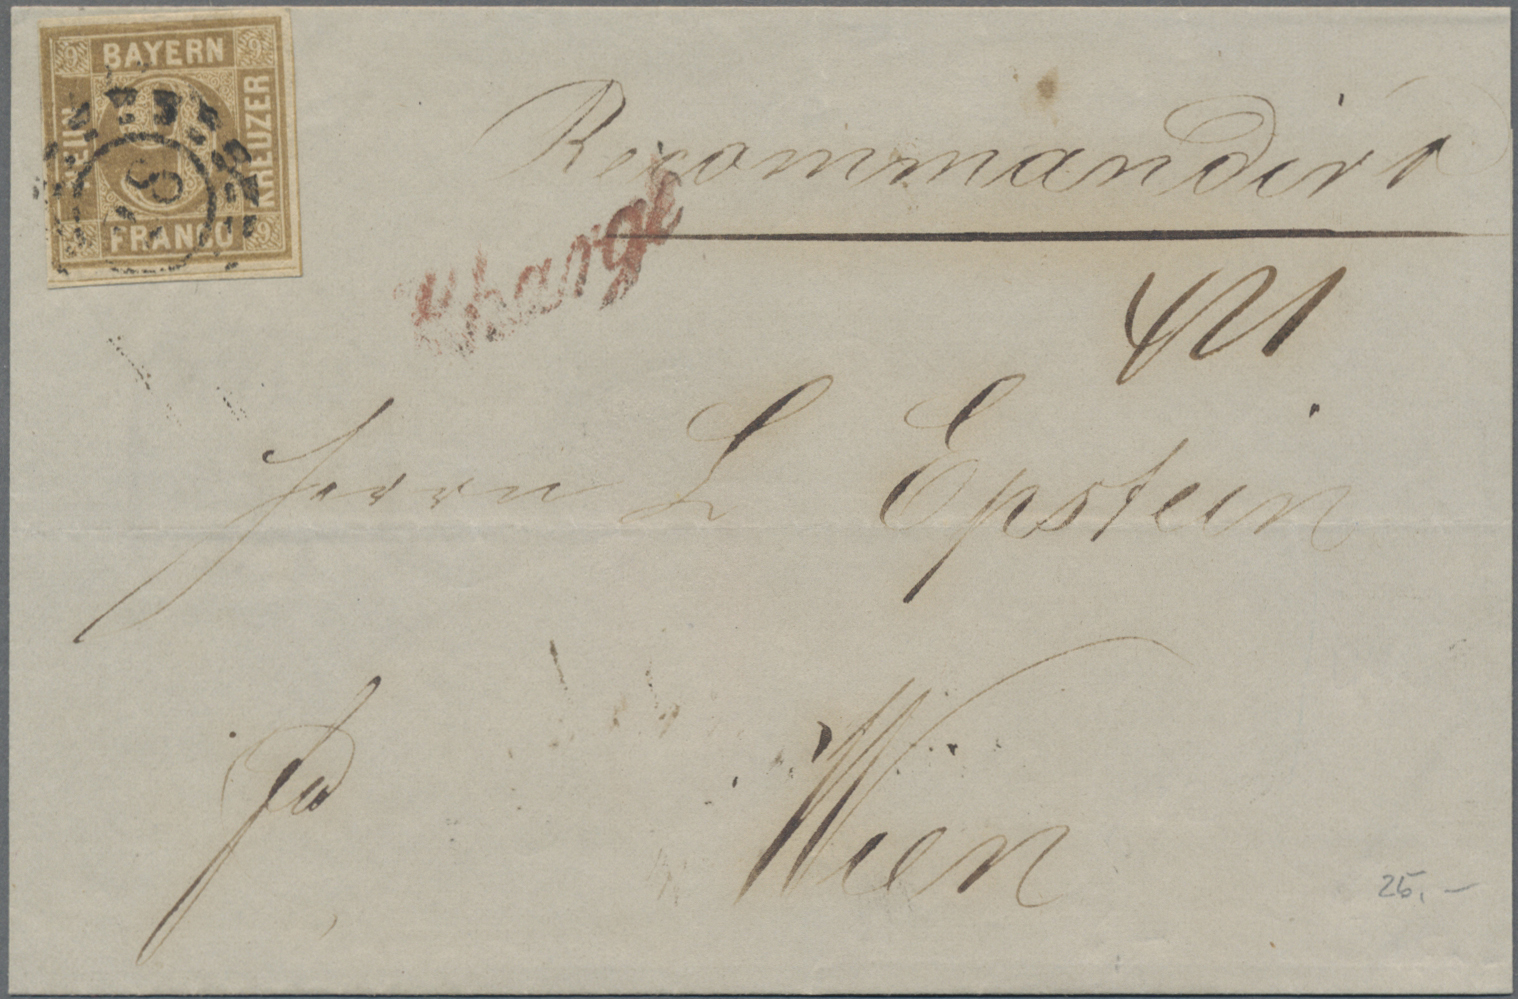 9 BAYERN 9
NEUN
KREUZER
9 FRANCO 9
Recommandirt
Chargé
Herrn L Epstein
Wien
25.–